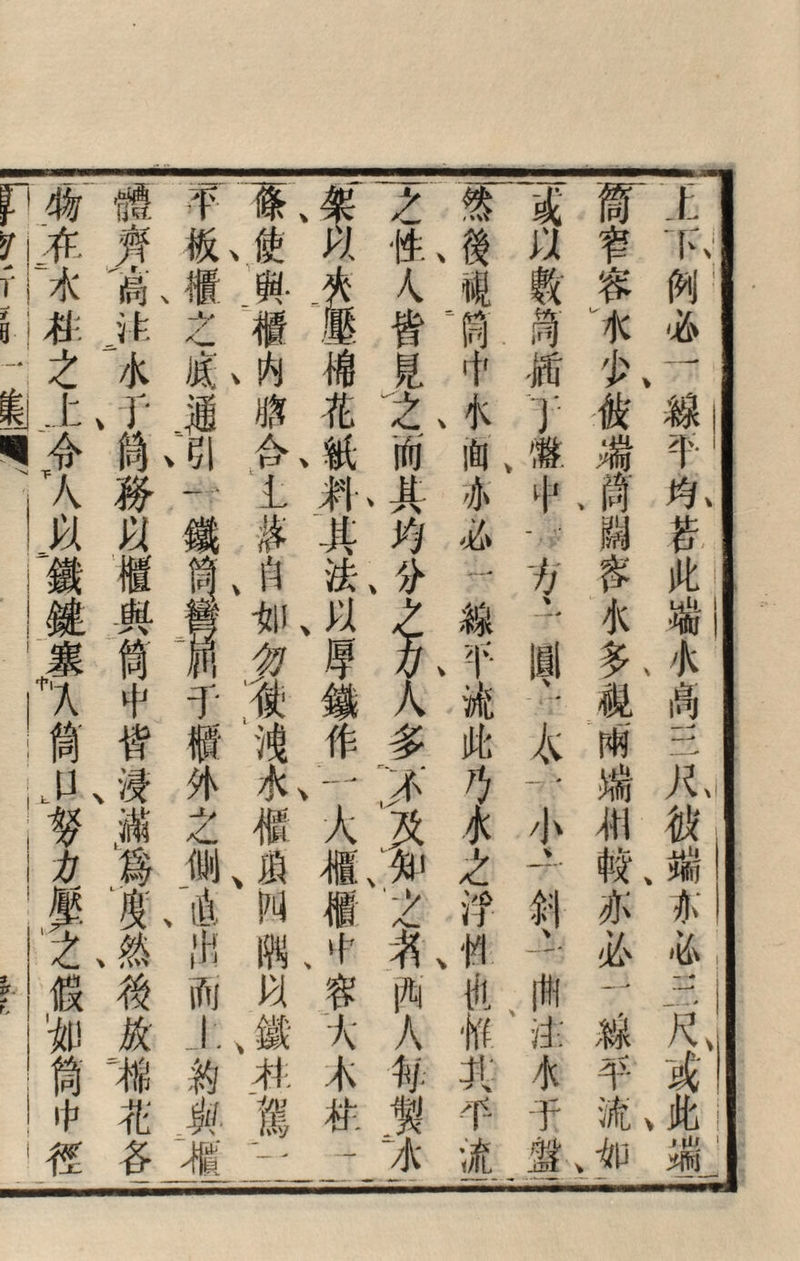 上下例必一線平均若此端水高三尺彼端亦必三尺或此端
筒窄容水少彼端筒闊容水多視兩端相較亦必一線平流如
或以數筒插于盤中一方一圓一大一小一斜一曲注水于盤
然後視筒中水面亦必一線平流此乃水之浮性也惟其平流
之性人皆見之而其均分之力人多不及知之者西人每製水
架以夾壓棉花紙料其法以厚鐵作一大櫃櫃中容大木柱一
條使與櫃内脗合上落自如勿使洩水櫃頂四隅以鐵柱駕一
平板櫃之底通引一鐵筒彎屈于櫃外之側直出而上約與櫃
體齊高注水于筒務以櫃與筒中皆浸滿爲度然後放棉花各
物在水柱之上令人以鐵鍵塞入筒口努力壓之假如筒中徑
一集